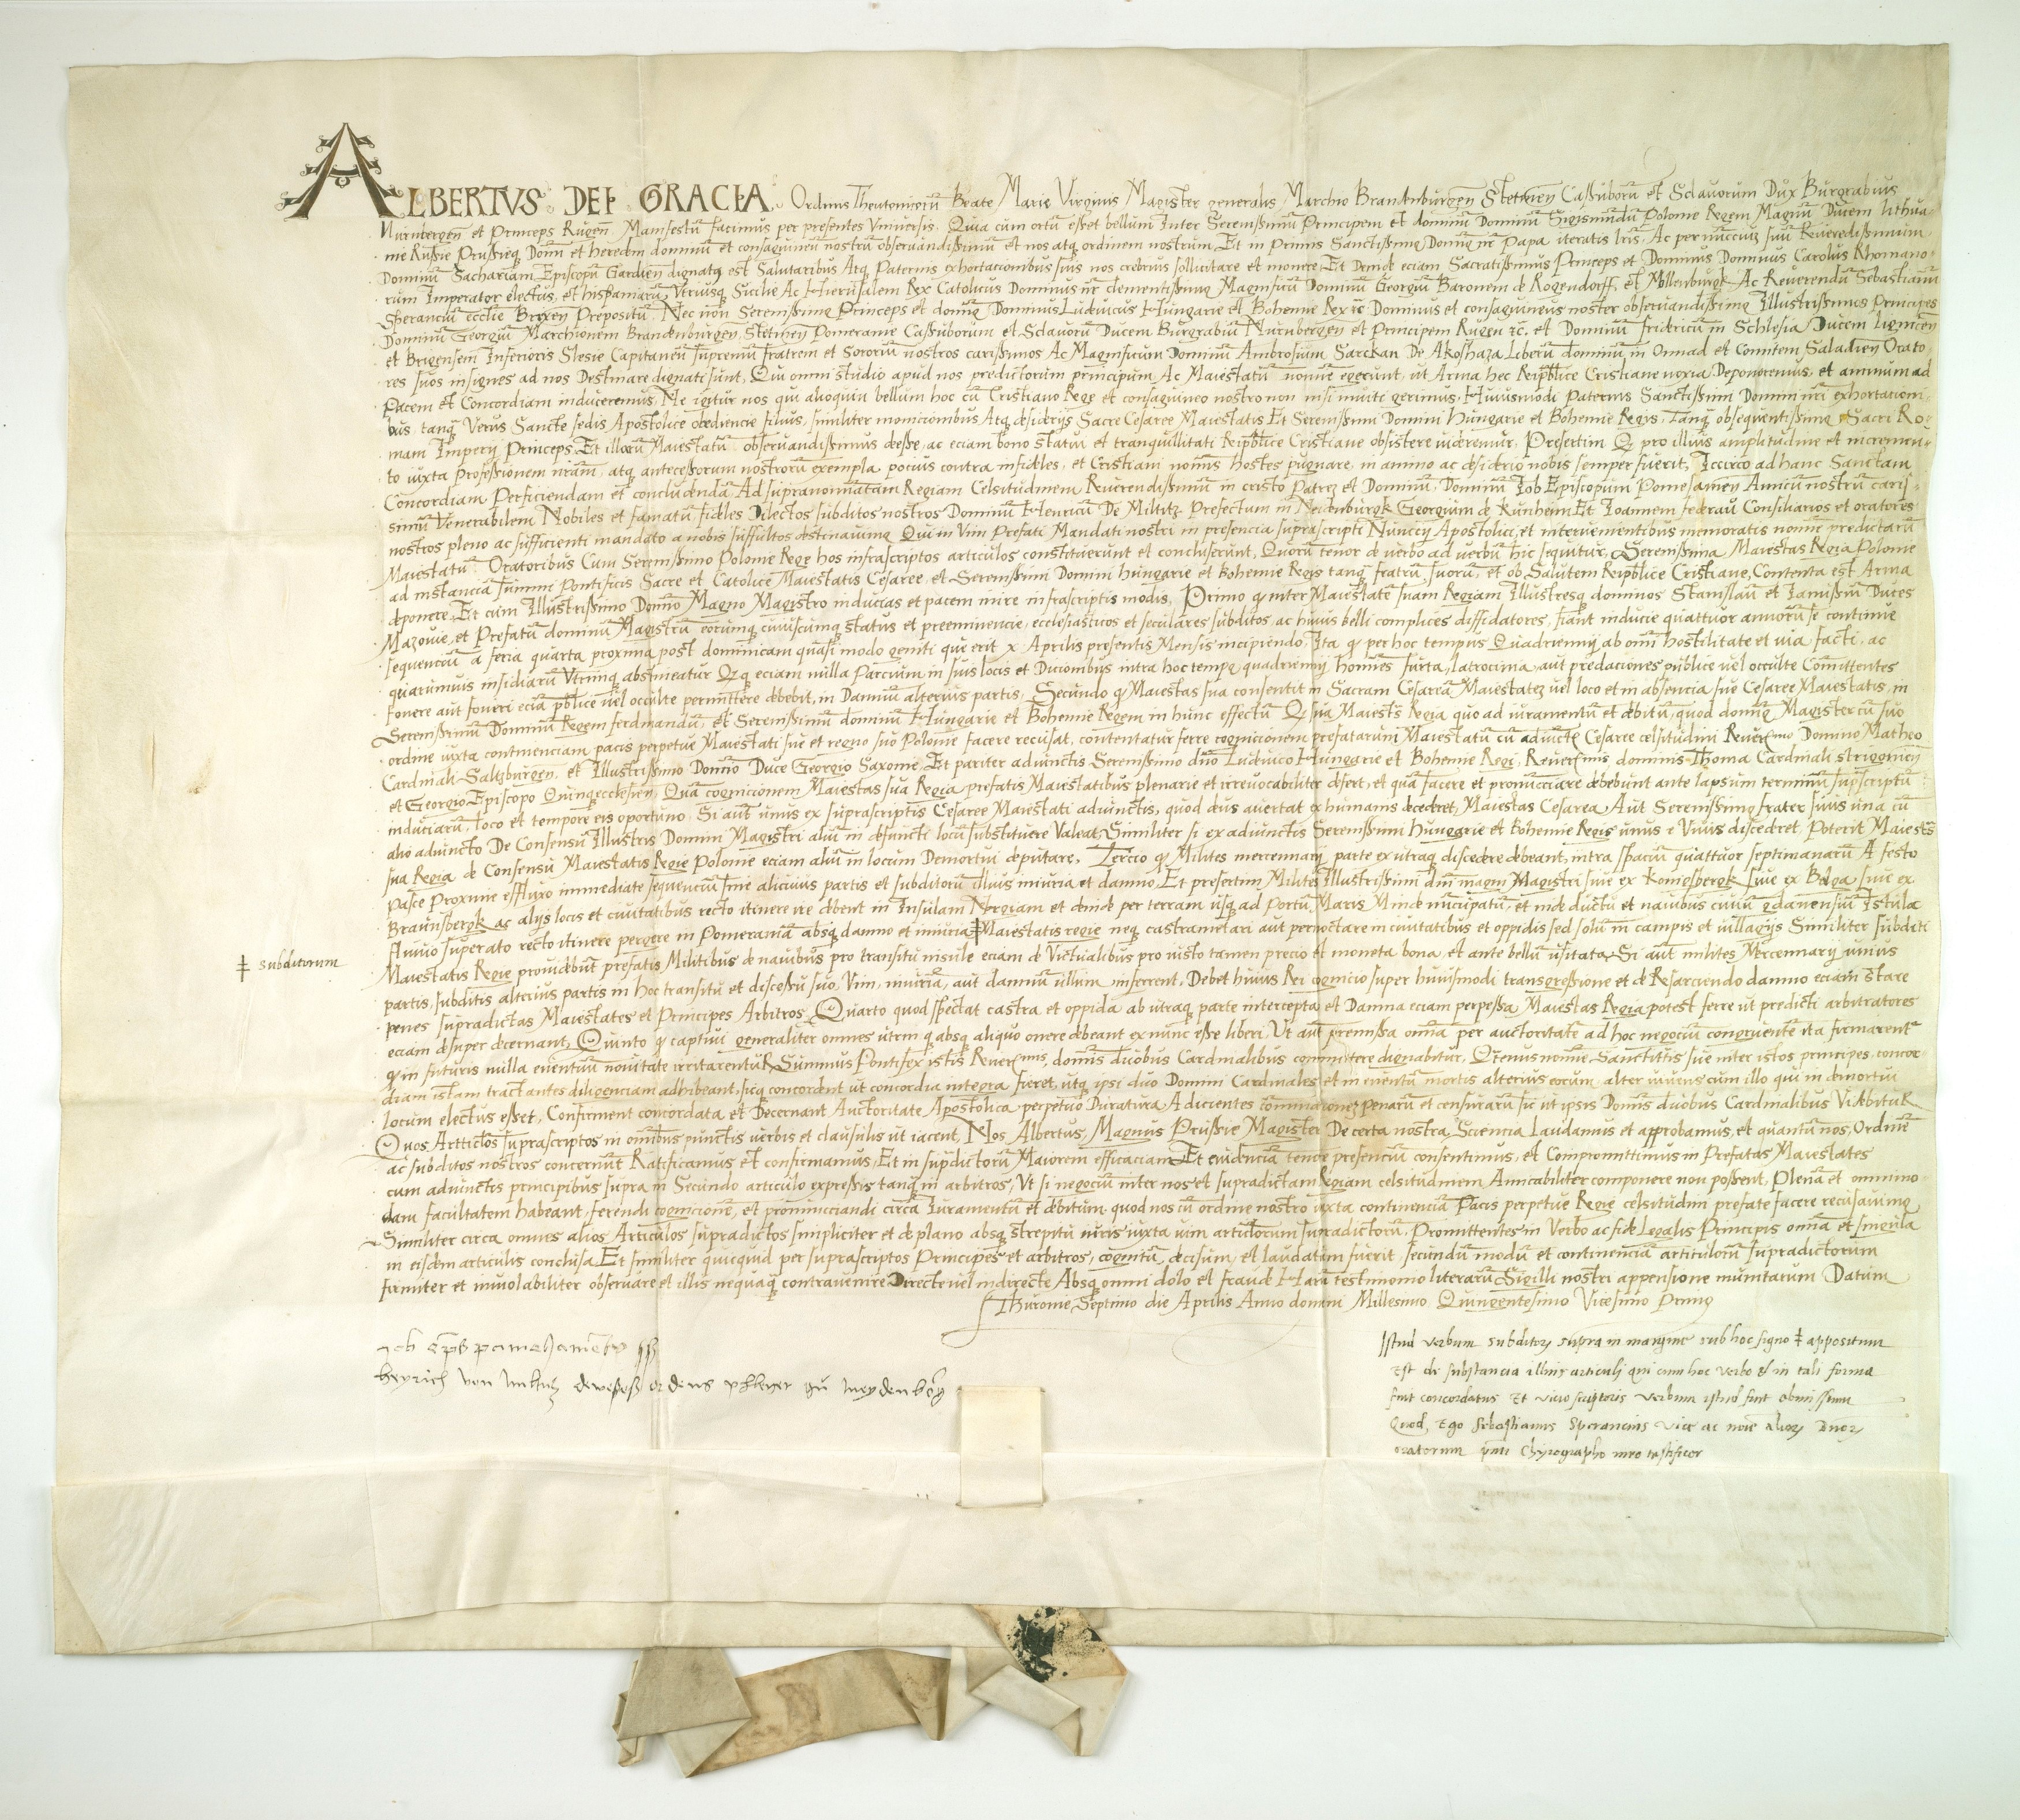 ALBERTVS DEI GRACIA Ordinis Theutonicorū Beate Marie Virginis Magister generalis Marchio Brandnburgen̄ Stetinen̄ Cassuborū et Sclauorum Dux Burgrabius
Nurnbergen̄ et Princeps Rugen̄ Manifestū facimus per presentes Vniuersis. Quia cum ortū esset bellum Inter Serenissimū Principem et dominū Dominū Sigismundū Polonie Regem Magnū Ducem lithua-
nie Russie Prussieq̨ Domn̄ et heredem dominū et consaguineū nostrū obseruandissimū et nos atq̨ ordinem nostrum. Et in primis Sanctissimꝰ Domnꝰ nr̄ Papa iteratis lr̄is, Ac per nūcciuz suū Reueredissimum
Dominū Sachariam Episcopū Gardien̄ dignatꝰ est Salutaribus Atq̨ Paternis exhortacionibus suis nos crebrius sollicitare et monere, Et Deinde eciam Sacratissimus Princeps et Dominus Dominus Carolus Rhomano-
rum Imperator electus, et hispaniarū Vtriusq̨ Sicilie Ac Hierusalem Rex Catolicus Dominus nr̄ clementissimꝰ Magnificū Dominū Georgiū Baronem de Rogendorff, et Mollenburgk Ac Reuerendū Sebastianū
Speranciū ecclīe Brixen̄ Prepositū Nec non Serenissimꝰ Princeps et domnꝰ Dominus Ludouicus Hungarie et Bohemie Rex ꝛc̄ Dominus et consaguineus noster obseruandissimꝰ Illustrissimos Principes
Dominū Georgiū Marchionem Brandenburgen̄ Stettinen̄ Pomeranie Cassuborum et Sclauorū Ducem Burgrabiū Nurnbergen̄ et Principem Rugen̄ ꝛc̄. et Dominū fridricū in Schlesia Ducem lignicen̄
et Brigensem Inferioris Slesie Capitaneū supremū fratrem et Sororiū nostros carissimos Ac Magnificum Dominū Ambrosium Sarckan De Akoshaza Liberū dominū in Onnad et Comitem Saladien̄ Orato
res suos insignes ad nos Destinare dignati sunt, Qui omni studio apud nos predictorum principum Ac Maiestatū noīne egerunt, ut Arma hec Reipb̄lice Cristiane noxia Deponeremus, et animum ad
Pacem et Concordiam induceremus, Ne igitur nos qui alioquin bellum hoc cū Cristiano Rege et consaguineo nostro non nisi inuite gerimus, Huiusmodi Paternis Sanctissimi Domini nr̄i exhortacioni-
bus, tanq̄ Verus Sancte sedis Apostolice obediencie filius, similiter monicionibus Atq̨ desiderijs Sacre Cesaree Maiestatis Et Serenissimi Domini Hungarie et Bohemie Regis, Tanq̄ obsequentissimꝰ Sacri Ro-
mani Imperij Princeps, Et illorū Maiestatū obseruandissimus deesse, ac eciam bono statui et tranquillitati Reipb̄lice Cristiane obsistere uideremur, Presertim Q̨ pro illius amplitudine et incremen-
to iuxta Professionem nr̄am, atq̨ antecessorum nostrorū exempla pocius contra infideles, et Cristiani nomīs hostes pugnare, in animo ac desiderio nobis semper fuerit, Iccirco ad hanc Sanctam
Concordiam Perficiendam et concludendā Ad supranoīnatam Regiam Celsitudinem Reuerendissimū in cristo Patrez et Dominū, Dominū Iob Episcopum Pomesanien̄ Amicū nostrū caris-
simū Venerabilem Nobiles et famatū fideles Dilectos subditos nostros Dominū Henricū De Miltitz Prefectum in Neidenburgk Georgium de Kunheim Et Ioannem federaū Consiliarios et oratores
nostros pleno ac sufficienti mandato a nobis suffultos destinauimꝰ Qui in Vim Prefati Mandati nostri in presencia suprascripti Nunccij Apostolici, et interuenientibus memoratis noīne predictarū
Maiestatū Oratoribus Cum Serenissimo Polonie Rege hos infrascriptos articulos constituerunt et concluserunt, Quorū tenor de uerbo ad uerbū hic sequitur, Serenissima Maiestas Regia Polonie
ad instanciā summi Pontificis Sacre et Catolice Maiestatis Cesaree, et Serenissimi Domini hungarie et bohemie Regis tanq̄ fratrū suorū, et ob Salutem Reipb̄lice Cristiane, Contenta est Arma
deponere, Et cum Illustrissimo Domn̄o Magno Magistro inducias et pacem inire infrascriptis modis, Primo q̨ inter Maiestatē suam Regiam Illustresq̨ dominos Stanislaū et Ianussiū Duces
Mazouie, et Prefatū dominū Magistrū eorumq̨ cuiuscunq̨ status et preeminencie, ecclesiasticos et seculares subditos, ac huius belli complices diffidatores, fiant inducie quattuor annorū se continue
sequenciū a feria quarta proxima post dominicam quasi modo geniti que erit x Aprilis presentis Mensis incipiendo, Ita q̨ per hoc tempus Quadriennij, ab om̄i hostilitate et uia facti, ac
quarumuis insidiarū Vtrinq̨ abstineatur Q̨q̨ eciam nulla Parcium in suis locis et Dicionibus intra hoc tempꝰ quadriennij homīes furta, latrocinia aut predaciones publice uel occulte Comittentes
fouere aut foueri eciā pb̄lice uel occulte permittere debebit, in Damnū alterius partis, Secundo q̨ Maiestas sua consentit in Sacram Cesareā Maiestatez uel loco et in absencia sue Cesaree Maiestatis, in
Serenissimū Dominū Regem ferdinandū, et Serenissimū dominū Hungarie et Bohemie Regem in hunc effectū Q̨ sua Maiestas Regia quo ad iuramentū et debitū, quod domnꝰ Magister cū suo
ordine iuxta continenciam pacis perpetue Maiestati sue et regno suo Polonie facere recusat, contentatur ferre cognicionem prefatarum Maiestatū cū adiūctis Cesaree celsitudini Reuerīmo Domino Matheo
Cardinali Saltzburgen̄, et Illustrissimo Domīo Duce Georgio Saxonie, Et pariter adiunctis Serenissimo dn̄o Ludouico Hungarie et Bohemie Regi, Reuerīmis dominis Thoma Cardinali strigonien̄
et Georgio Episcopo Quinqecclesien̄, Quā cognicionem Maiestas sua Regia prefatis Maiestatibus plenarie et irreuocabiliter defert, et quā facere et pronuncciare debebunt ante lapsum terminū sup̄scriptū
induciarū, loco et tempore eis oportuno, Si aūt unus ex suprascriptis Cesaree Maiestati adiunctis, quod deus auertat ex humanis decederet, Maiestas Cesarea Aut Serenissimꝰ frater suus una cū
alio adiuncto De Consensū Illustris Domini Magistri aliū in defuncti locū substituere Valeat, Similiter si ex adiunctis Serenissimi Hungarie et bohemie Regis unus e Viuis discederet, Poterit Maiestas
sua Regia de Consensū Maiestatis Regie Polonie eciam aliū in locum Demortui deputare, Tercio q̨ Milites mercennarij parte ex utraq̨ discedere debeant, intra spaciū quattuor septimanarū A festo
pasce Proxime effluxo immediate sequenciū sine alicuius partis et subditorū illius iniuria et damno, Et presertim Milites Illustrissimi dn̄i magni Magistri siue ex Konigsbergk siue ex Balga siue ex
Braunsbergk ac alijs locis et ciuitatibus recto itinere ire debent in Insulam Nergiam et deinde per terram usq̨ ad Portū Maris Minde nuncupatū, et inde ductu et nauibus ciuiū gdanensiū Istula
fluuio superato recto itinere pergere in Pomeraniā absq̨ damno et iniuria ‡ Maiestatis regie neq̨ castrametari aut pernoctare in ciuitatibus et oppidis sed solū in campis et uillagijs Similiter subditi
‡ subditorum
Maiestatis Regie prouidebūt prefatis Militibus de nauibus pro transitu nisule eciam de Victualibus pro iusto tamen precio et moneta bona, et ante bellū usitata, Si aūt milites Mercennarij unius
partis, subditis alterius partis in hoc transitu et discessu suo, Vim, iniuriā, aut damnū ullum inferrent, Debet huius Rei cognicio super huiusmodi transgressione et de Resarciendo damno eciam stare
penes supradictas Maiestates et Principes Arbitros, Quarto quod spectat castra et oppida ab utraq̨ parte intercepta, et Damna eciam perpessa Maiestas Regia potest ferre ut predicti arbitratores
eciam desuper decernant, Quinto q̨ captiui generaliter omnes utrinq̨ absq̨ aliquo onere debeant ex nunc esse liberi, Vt aūt premissa omīa per auctoritatē ad hoc negociū congruentē ita firmarentꝰ
q̨ in futuris nulla euentuū nouitate irritarentuR Summus Pontifex istis Reuerīmis, dominis duobus Cardinalibus committere dignabitur, Q̄tenus noīne Sanctitatis sue inter istos principes, concor-
diam istam tractantes diligenciam adhibeant, sicq̨ concordent ut concordia integra fieret, utq̨ ipsi duo Domini Cardinales, et in euentū mortis alterius eorum, alter uiuens cum illo qui in demortui
locum electus esset, Confirment concordata et Decernant Auctoritate Apostolica perpetuo Duratura Adicientes penarū et censurarū sic ut ipsis Dominis duobus Cardinalibus VidebituR
Quos Articulos suprascriptos in omībus punctis uerbis et clausulis ut iacent, Nos Albertus, Magnus Prussie Magister De certa nostra Sciencia Laudamus et approbamus, et quantū nos, Ordinē
ac subditos nostros concernūt Ratificamus et confirmamus, Et in sup̄dictorū Maiorem efficaciam Et euidenciā tenore presenciū consentimus, et Compromittimus in Prefatas Maiestates
cum adiunctis principibus supra in Secundo articulo expressis tanq̄ in arbitros, Vt si negociū inter nos et supradictam Regiam celsitudinem Amicabiliter componere non possent, Plenā et omnino-
dam facultatem habeant, ferendi cognicionē, et pronuncciandi circa Iuramentū et debitum quod nos cū ordine nostro iuxta continenciā Pacis perpetue Regie celsitudini prefate facere recusauimꝰ
Similiter circa omnes alios Articulos supradictos simpliciter et de plano absq̨ strepitu iuris iuxta uim articulorum supradictorū. Promittentes in Verbo ac fide Legalis Principis omīa et singula
in eisdem articulis conclusa, Et similiter quicquid per suprascriptos Principes et arbitros, cognitū, decisum, et laudatum fuerit secundū modū et continenciā articulorū supradictorum
firmiter et inuiolabiliter obseruare et illis nequaq̄ contrauenire Directe uel indirecte Absq̨ omni dolo et fraude Harū testimonio literarū Sigilli nostri appensione munitarum Datum
Thuronie, Septimo die Aprilis Anno domini Millesimo Quingentesimo Vicesimo Primo
Job ep̄s pomezanien̄ ss
heyrich von miltitz dewtzes ordens phleger zu neydenborg
Istud verbum subditorꝝ supra in margine sub hoc signo ‡ appositum
est de substancia illius articuli qui cum hoc verbo et in tali forma
fuit concordatus Et vicio scriptoris verbum istud fuit obmissum
Quod, Ego Sebastianus Sperancius vice ac noīe alioꝝ Dnoꝝ
oratorum p̄nti Chyrographo meo testificor